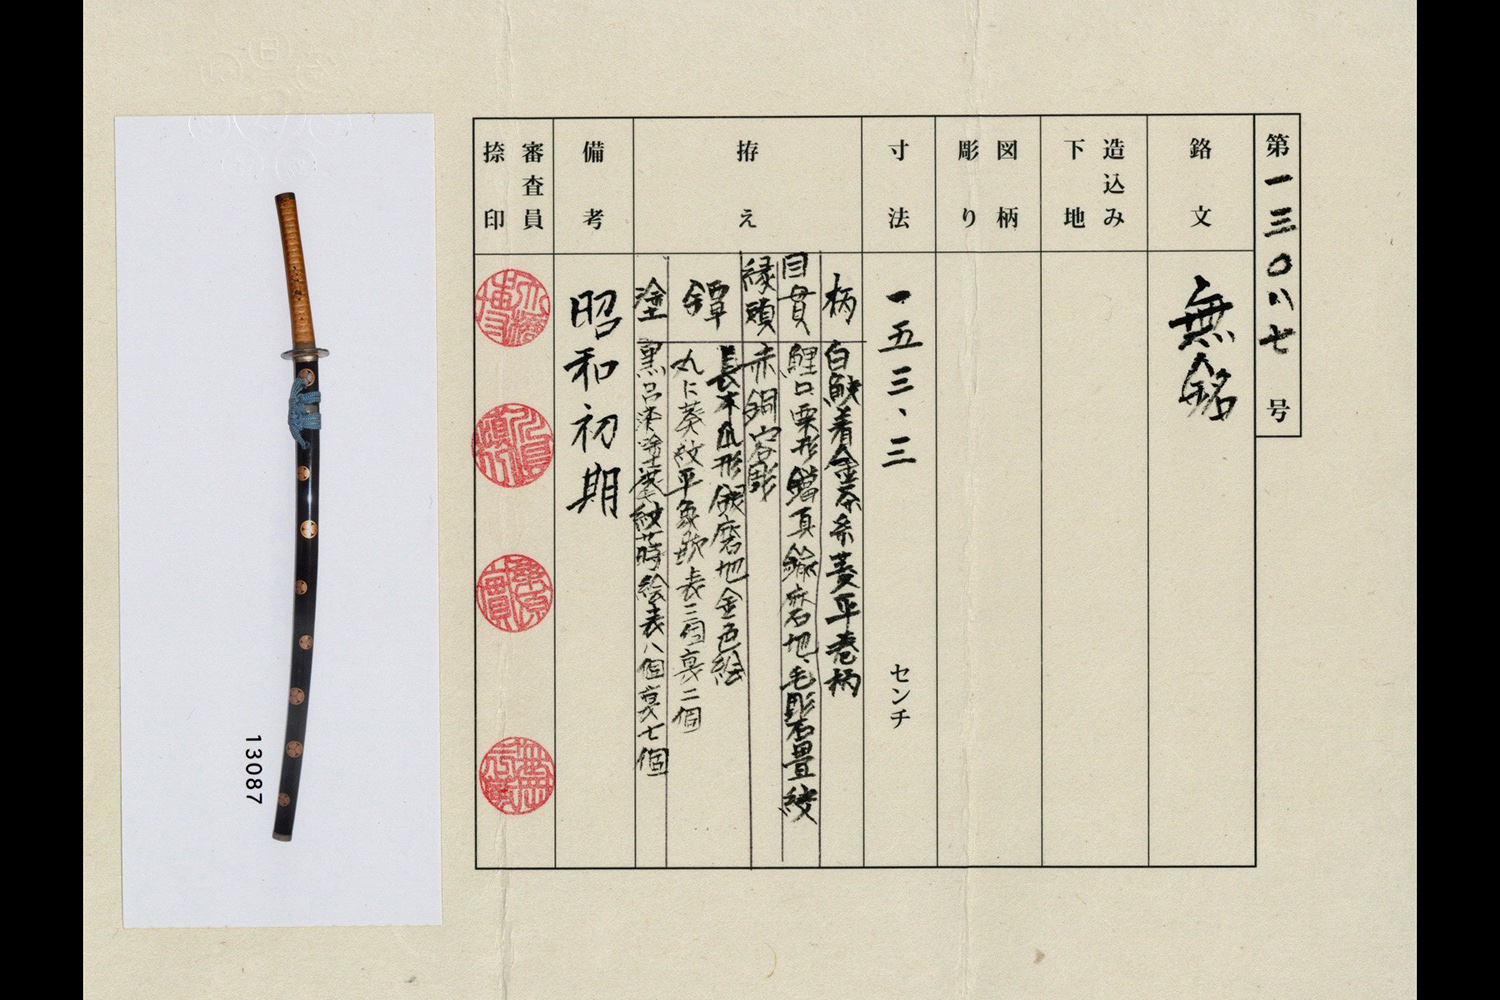 第一三〇八七号
銘文
無銘
造込み
下地
図柄
彫り
寸法
一五三、三
センチ
拵え
柄
白鮫着金茶糸菱平巻柄
目貫
鯉口栗形鐺真鍮磨地、毛彫石畳紋
縁頭
赤銅容彫
鐔
長木瓜形銀磨地金色絵
丸に葵紋平象嵌表三個裏二個
塗
黒呂漆塗葵紋蒔絵表八個裏七個
備考
昭和初期
審査員
捺印
13087